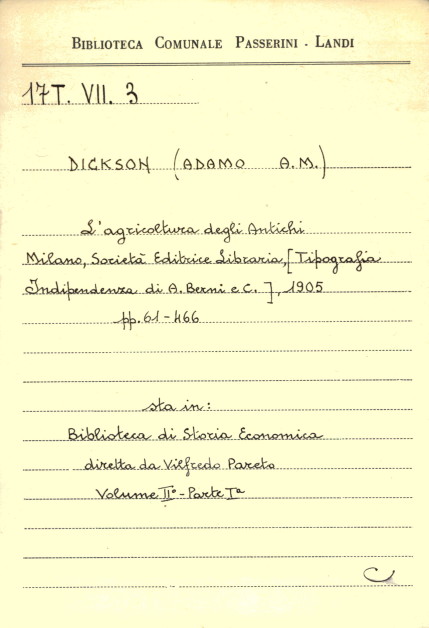 BIBLIOTECA COMUNALE PASSERINI - LANDI
17T. VII. 3
DICKSON (ADAMO A.M.)
L'agricoltura degli Antichi
Milano, Società Editrice Libraria, [Tipografia
Indipendenza di A. Berni e C.], 1905
pp. 61-466
sta in:
Biblioteca di Storia Economica
diretta da Vilfredo Pareto
Volume IIº - Parte Iª
C